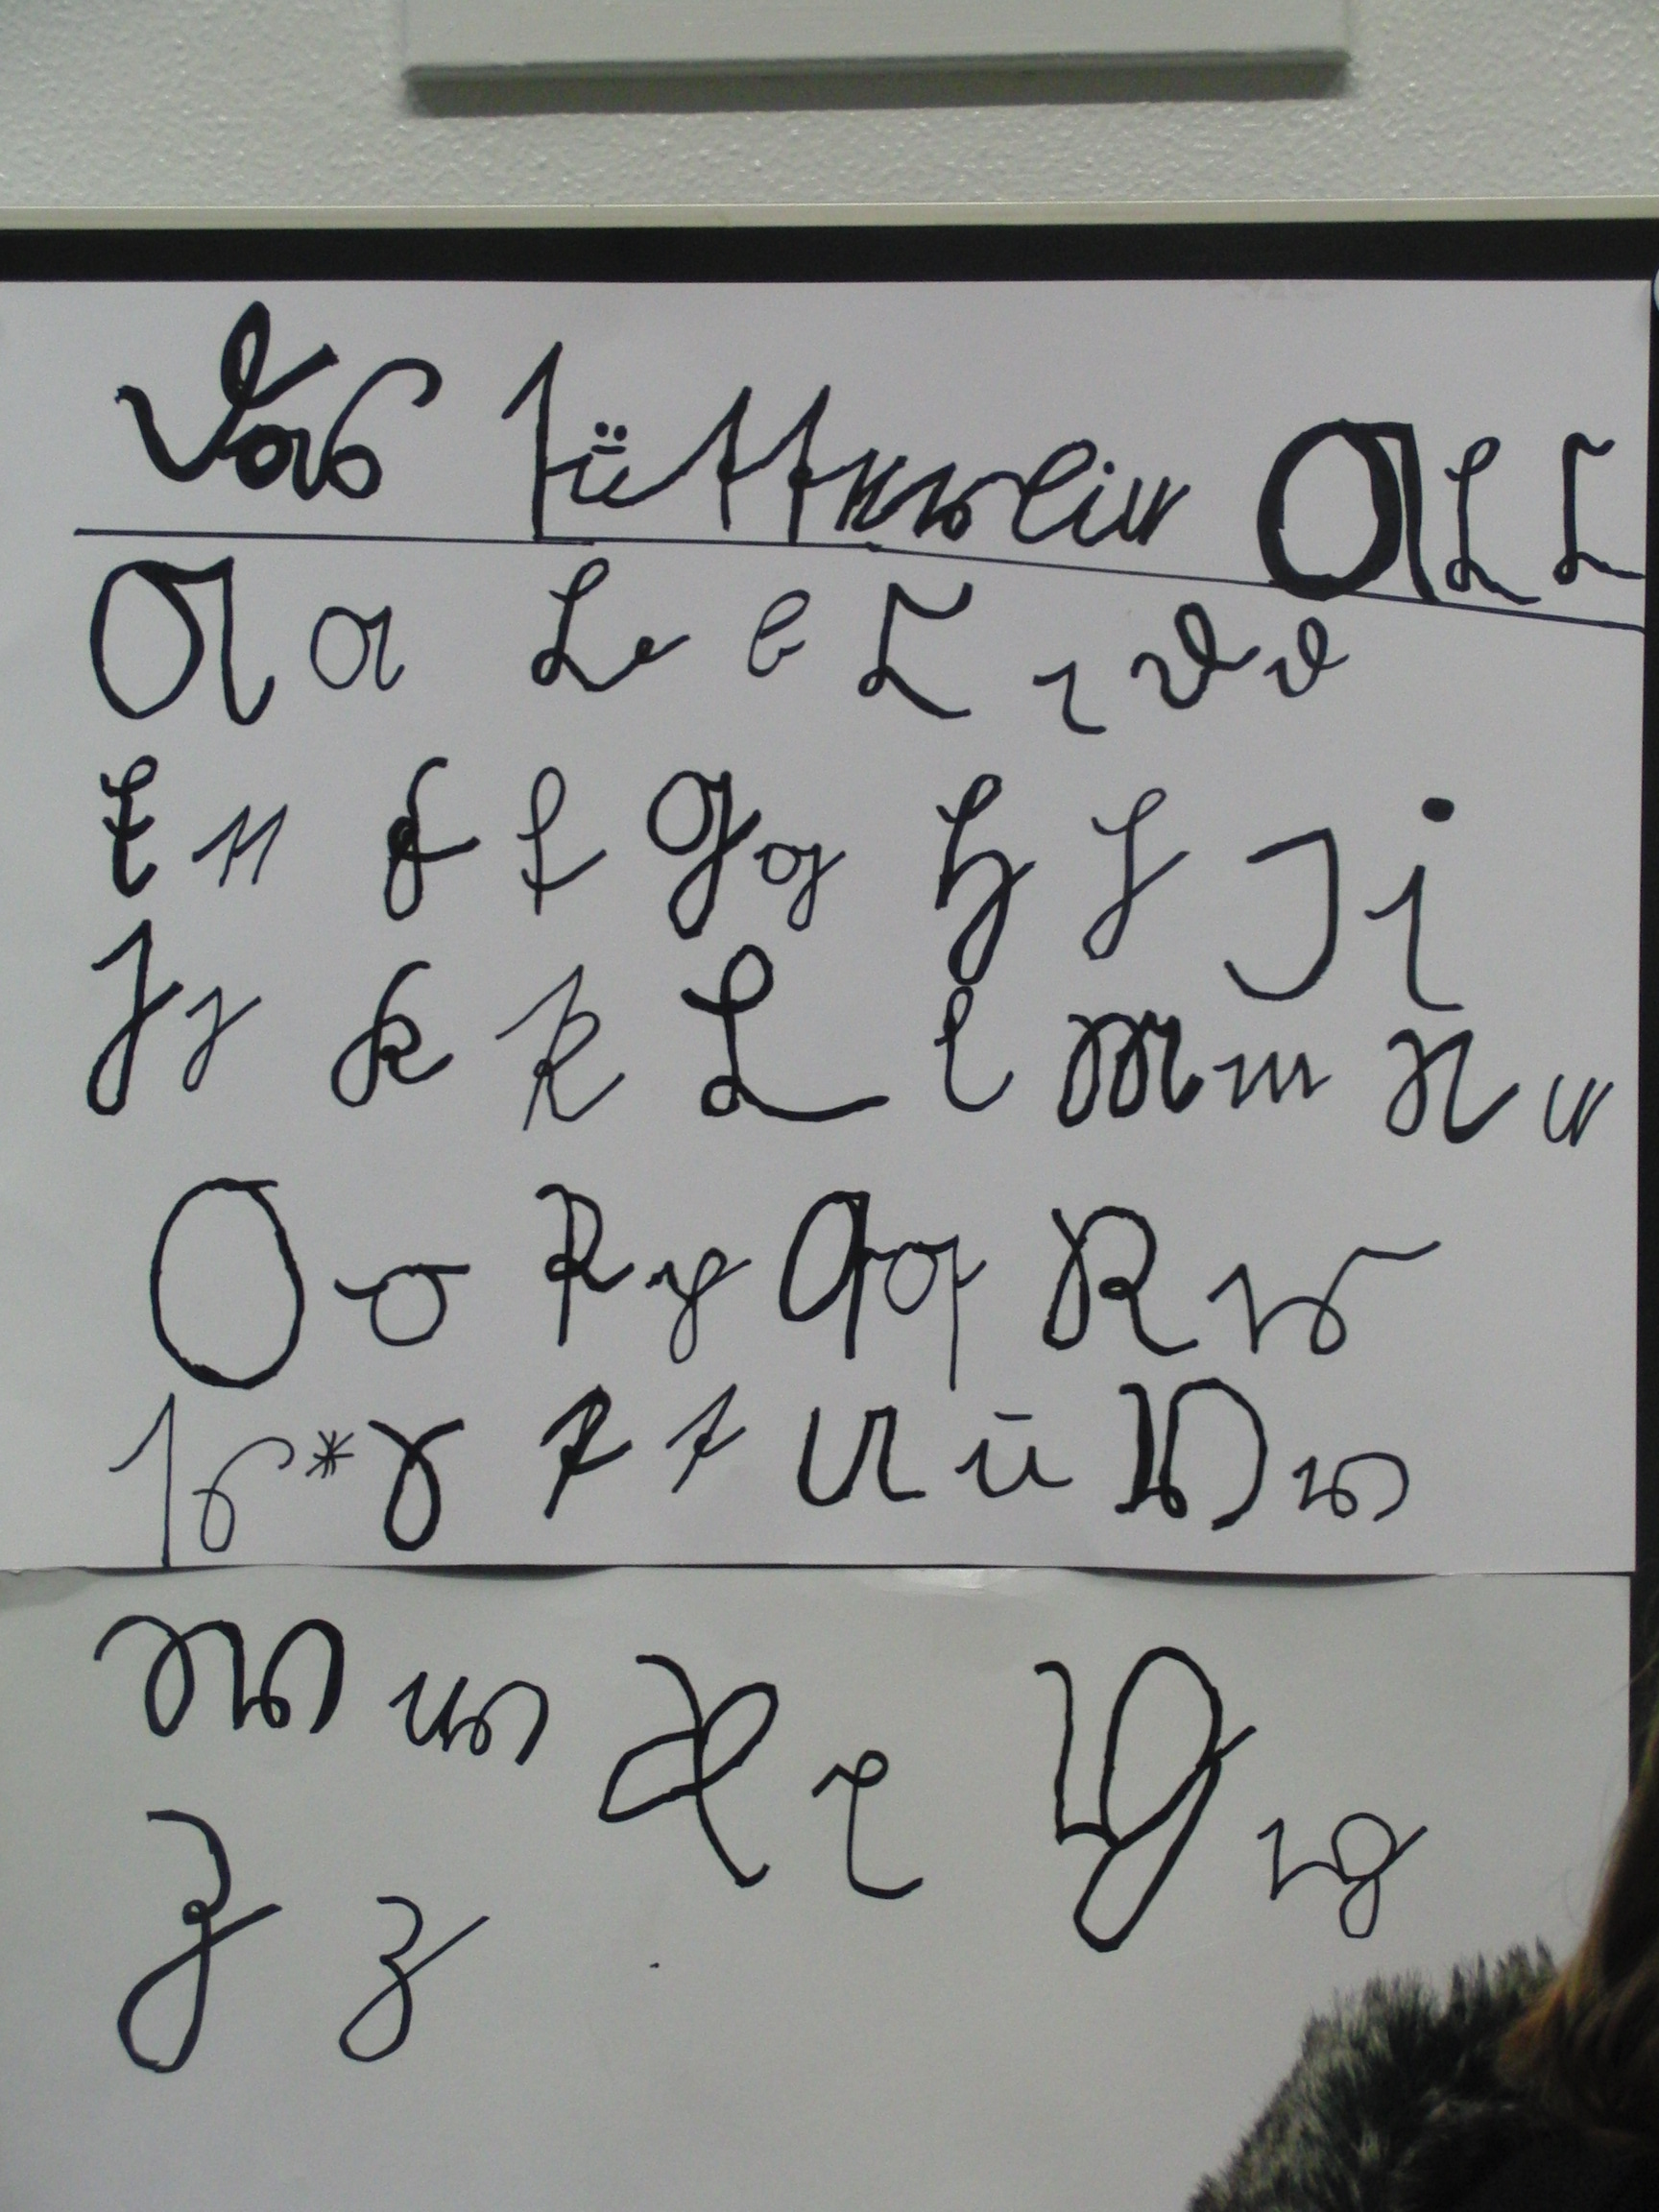 Das ſütterlin ABC
A a B b C c D d
E e F f G g H h I i
J j K k L l M m N n
O o P p Q q R r
ſ s * S T t U u V v
W w X x Y y
Z z